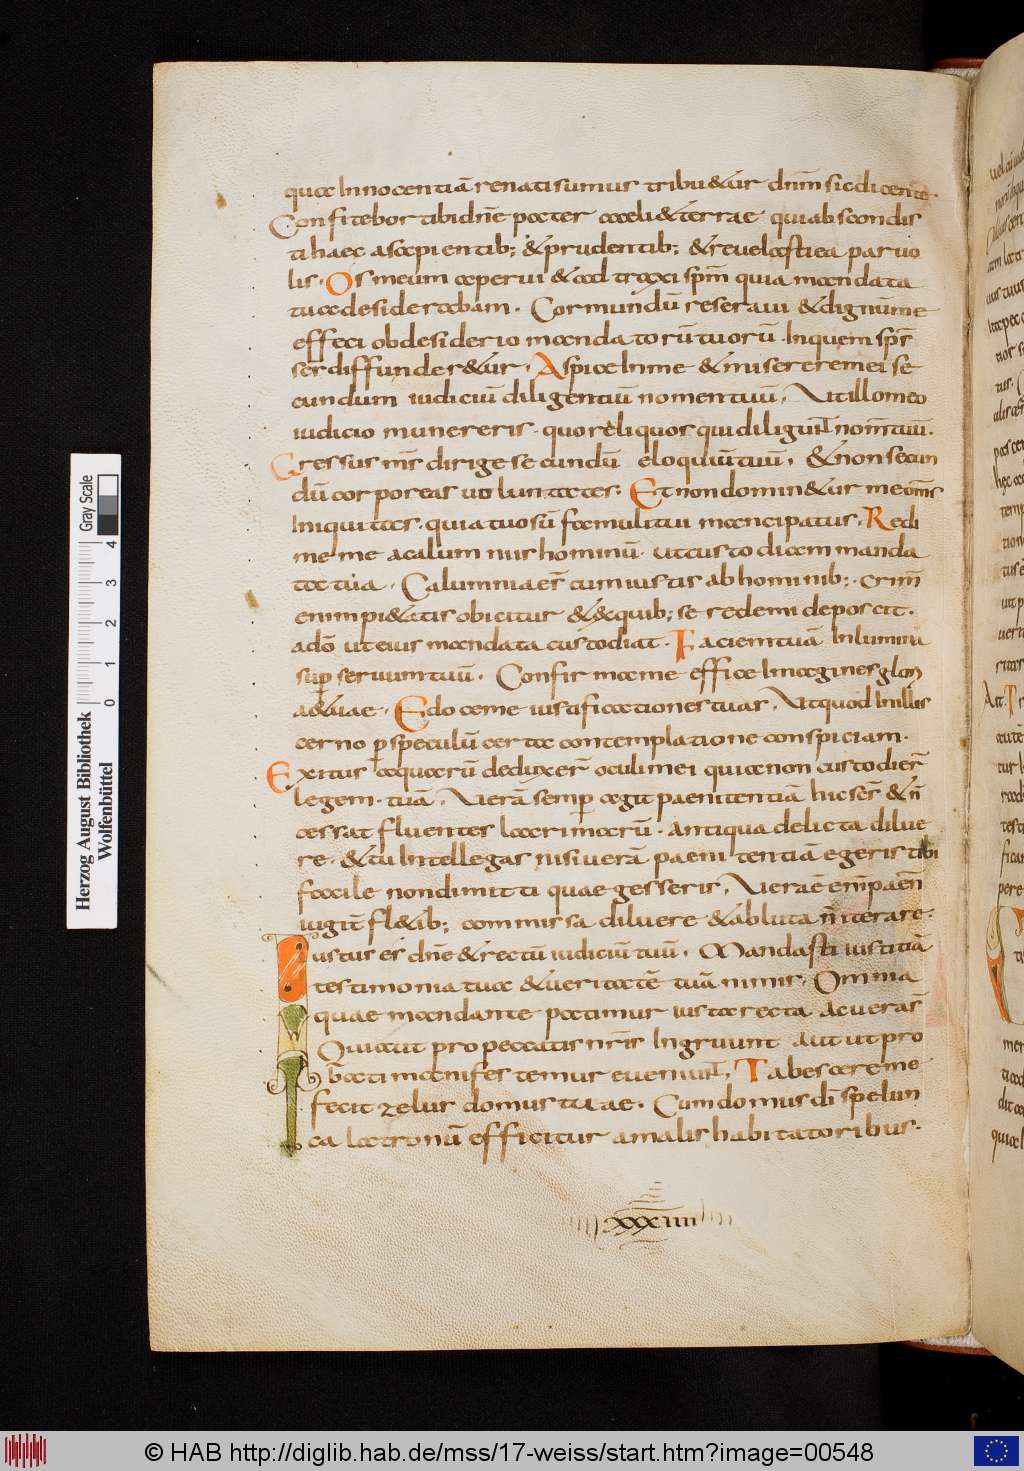 quae Innocentiā renati sumus tribu&ur dn̄m sic dicente.
Confitebor tibi dn̄e pater caeli & terrae qui abscondis
ti haec a sapientib; & prudentib; & reuelasti ea paruo
lis. Os meum aperui & adtraxi spm̄ quia mandata
tua desiderabam. Cor mundū reseraui & dignū me
effeci ob desiderio mandatorū tuorū. In quem sps̄
ser diffunder&ur. Aspice In me & miserere mei se
cundum iudiciū diligentiū nomen tuū. Ut illo meo
iudicio munereris. quo reliquos qui diligunt nom̄ tuū.
Gressus m̄s dirige secundū eloquiū tuū. & non secun
dū corporeas uoluntates. Et non domin&ur me om̄s
Iniquitas. quia tuo sū famulitui mancipatus. Redi
me me a calumniis hominū ut custodiam manda
ta tua. Calumnia er̄ cum iustis ab hominib; crim̄
enim pi&atis obicitur & & quib; se redemi deposcit.
a dō ut eius mandata custodiat. Faciem tuā Inlumina
sup̱ seruum tuū. Confirma me effice Imagines glori
a &uae. Edoce me iustificationes tuas. Ut quod In illis
cerno p̱ speculū certa contemplatione conspiciam.
Exitus aquarū deduxer̄ oculi mei quia non custodier̄
legem tuā. Uerā semp̱ agit paenitentiā hic ser̄ & n̄
cessat fluentes lacrimarū. antiqua delicta dilue
re. & tu Intellegas nisi uerā paenitentiā egeris tibi
facile non dimitti quae gesseris. Uerae eni̅ paen̄
uigit̄ fl&ib; commissa diluere & abluta n̄ iterare.
Iustus es dn̄e & rectū iudiciū tuū. Mandasti iustitiā
testimonia tua & ueritatē tuā nimis. Omnia
quae mandante patimur iusta recta ac ueras̄
Quia ut pro peccatis nr̄is Ingruunt aut ut pro
bati manifestemur eueniunt. Tabescere me
fecit zelus domus tuae. Cum domus di̅ spelun
ca latronū efficitur a malis habitatoribus.
XXXIIII
Herzog August Bibliothek
Wolfenbüttel
0 1 2 3 4 Gray Scale
© HAB http://diglib.hab.de/mss/17-weiss/start.htm?image=00548